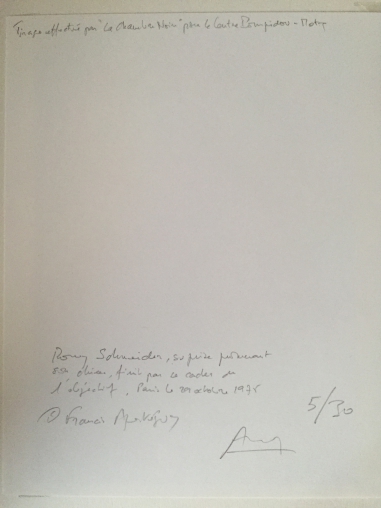 Tirage effectué par "La Chambre Noire" pour le Centre Pompidou - Metz
Romy Schneider, surprise promenant
son chien, finit par se cacher de
l'objectif. Paris le octobre 197
© Francis Apesteguy
5/30